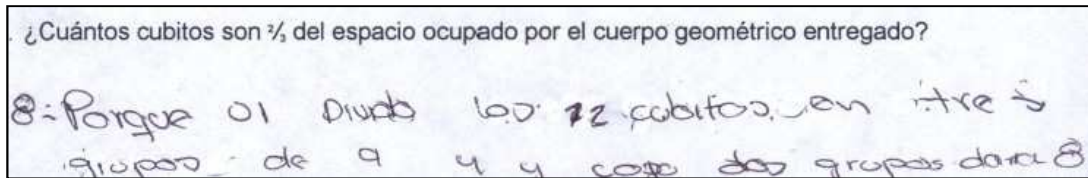 . ¿Cuántos cubitos son ⅔ del espacio ocupado por el cuerpo geométrico entregado?
8: Porque si Divido los 12 cubitos en tres
grupos de a 4 y cojo dos grupos dara 8